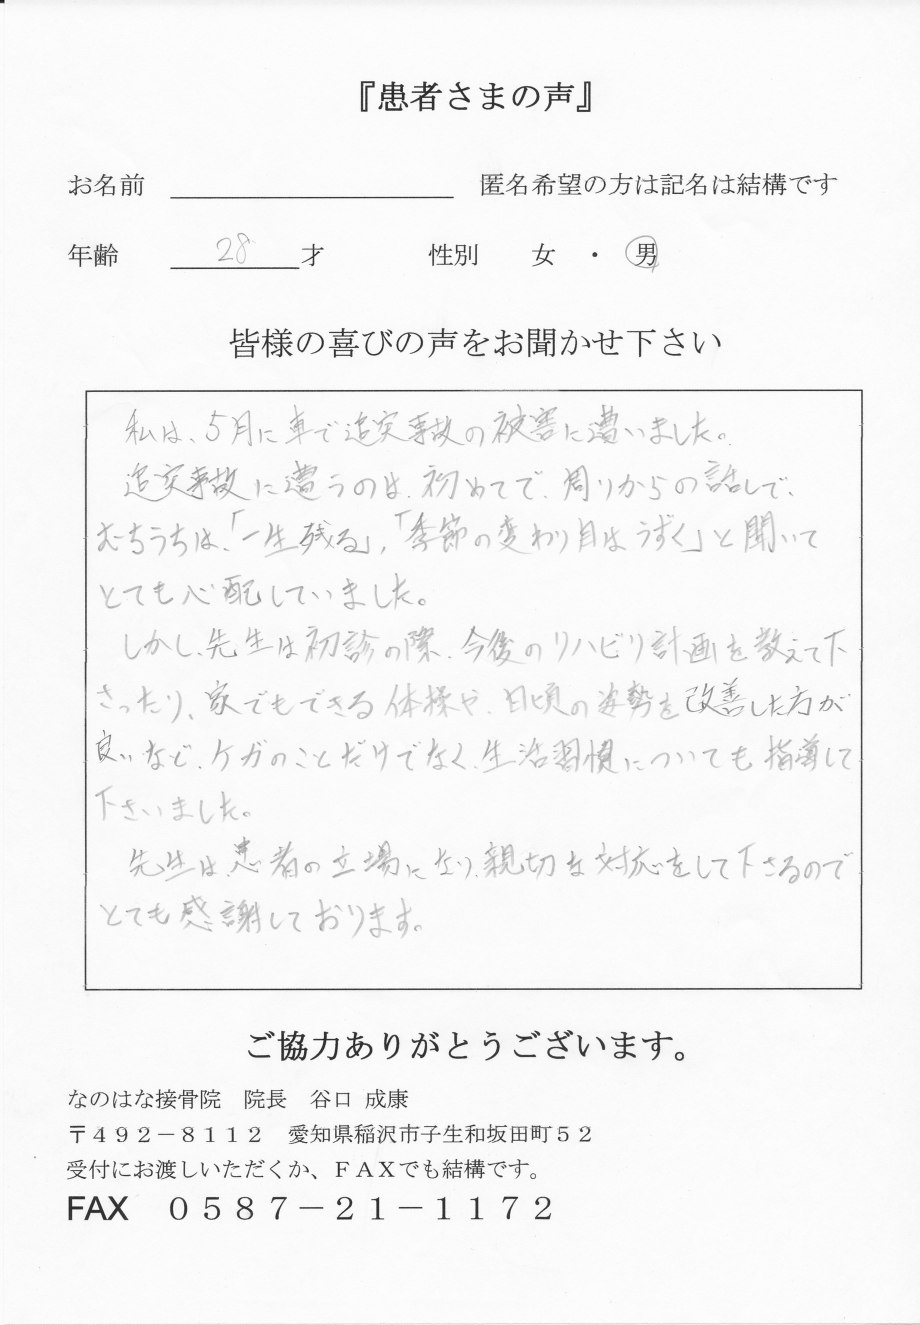 『患者さまの声』
お名前　　　　　　　匿名希望の方は記名は結構です
年齢　28　才　　　性別　　女　・　男
皆様の喜びの声をお聞かせ下さい
私は、5月に車で追突事故の被害に遭いました。
追突事故に遭うのは、初めてで、周りからの話しで、
むちうちは、「一生残る」,「季節の変わり目はうずく」と聞いて
とても心配していました。
しかし、先生は初診の際、今後のリハビリ計画を教えて下
さったり、家でもできる体操や、日頃の姿勢を改善した方が
良いなど、ケガのことだけでなく、生活習慣についても指導して
下さいました。
先生は、患者の立場になり、親切な対応をして下さるので
とても感謝しております。
ご協力ありがとうございます。
なのはな接骨院　院長　谷口 成康
〒４９２－８１１２　愛知県稲沢市子生和坂田町５２
受付にお渡しいただくか、ＦＡＸでも結構です。
FAX　０５８７－２１－１１７２